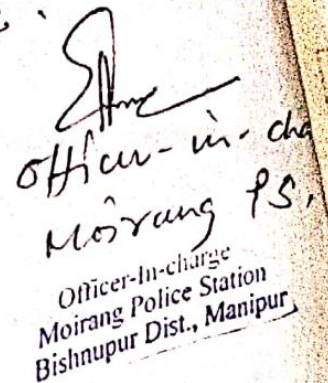 Officer-in-cha
Moirang PS.
Officer-In-charge
Moirang Police Station
Bishnupur Dist., Manipur